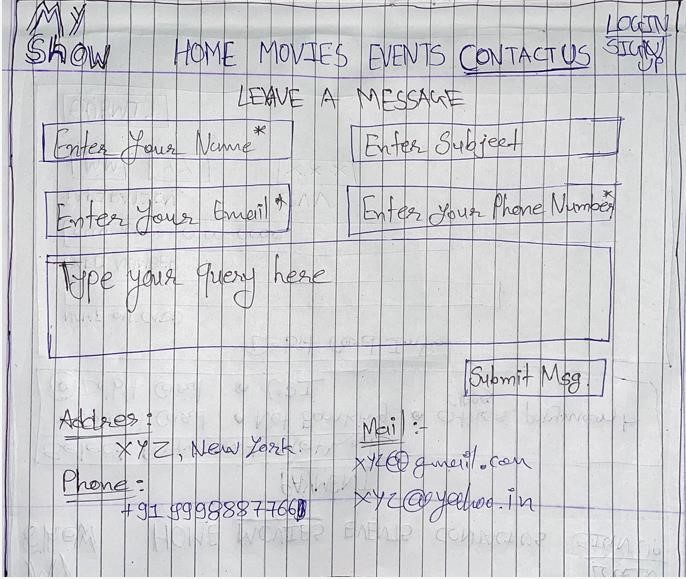 My
Show
HOME MOVIES EVENTS CONTACT US
LOGIN
SIGN
UP
LEAVE A MESSAGE
Enter Your Name*
Enter Subject
Enter Your Email*
Enter Your Phone Number*
Type your query here
Submit Msg.
Addres:
XYZ, New York.
Phone:
+91 9998887766
Mail:-
xyz@gmail.com
xyz@yahoo.in